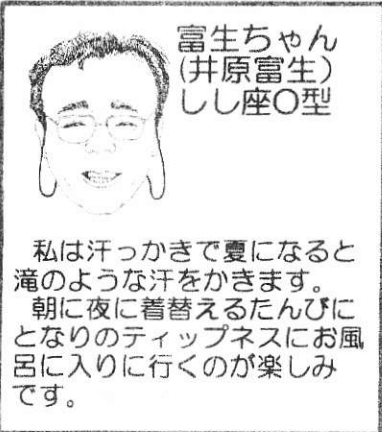 富生ちゃん
(井原富生)
しし座O型
私は汗っかきで夏になると
滝のような汗をかきます。
朝に夜に着替えるたんびに
となりのティップネスにお風
呂に入りに行くのが楽しみ
です。